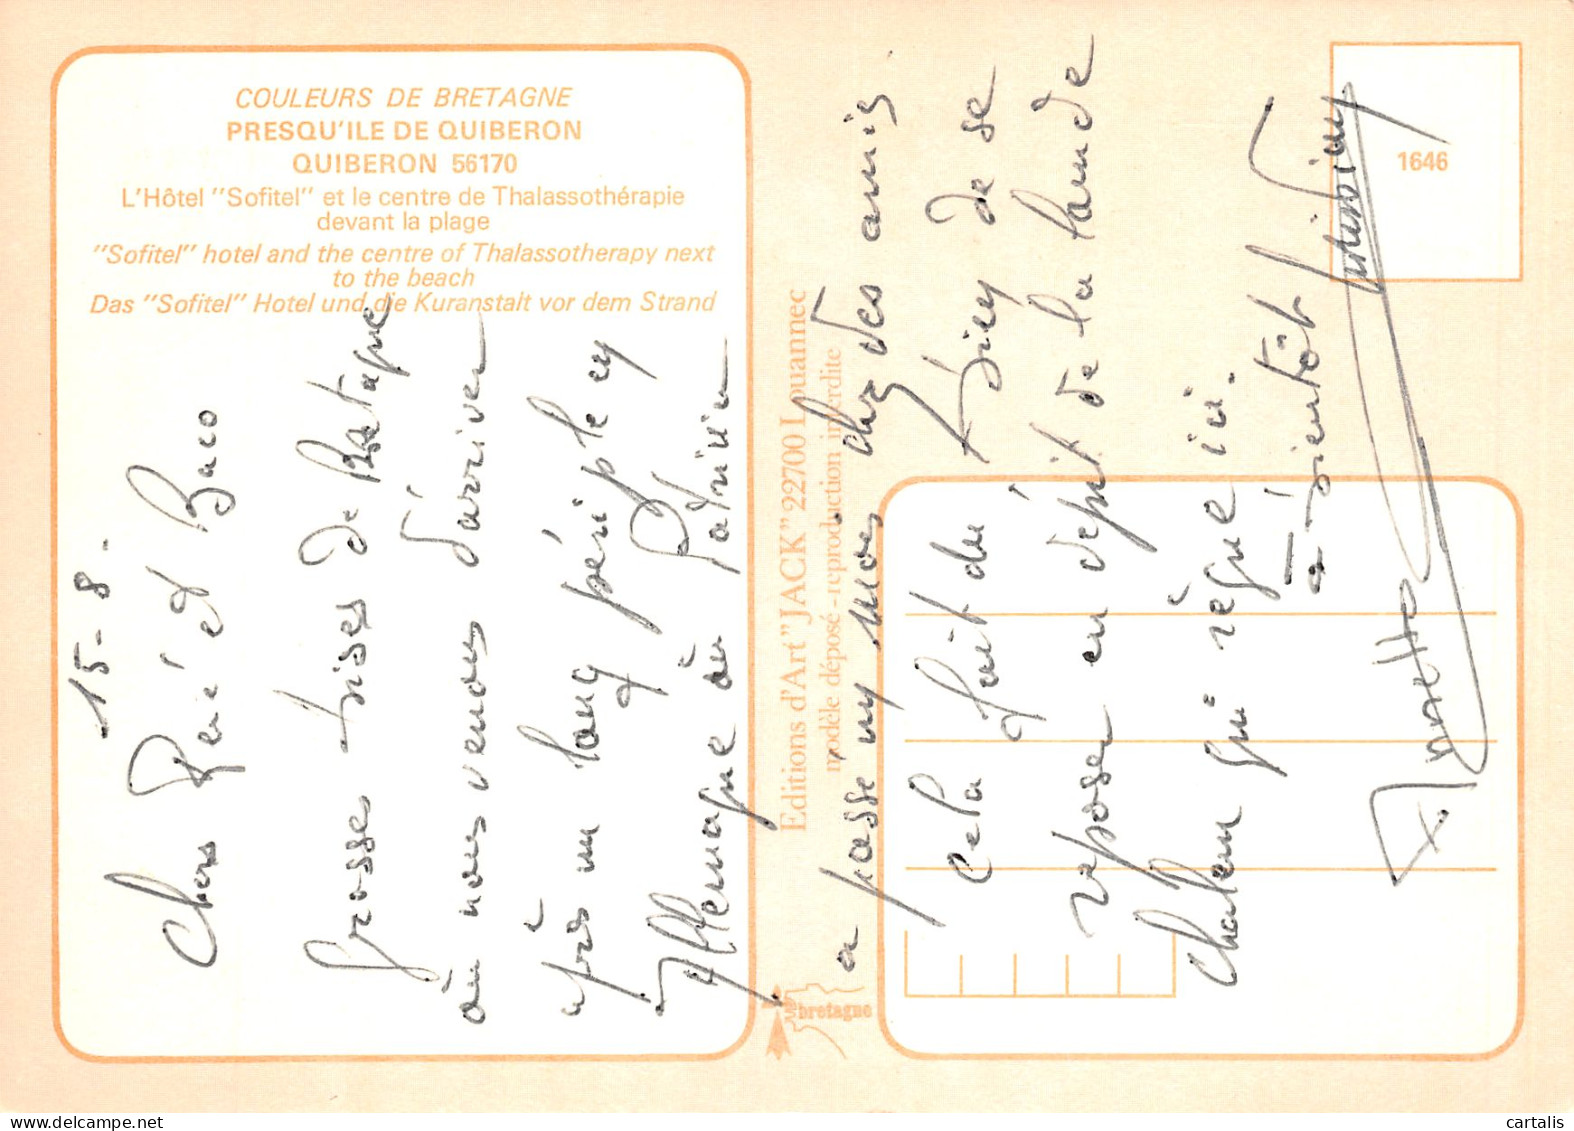 COULEURS DE BRETAGNE
PRESQU'ILE DE QUIBERON
QUIBERON 56170
L'Hôtel "Sofitel" et le centre de Thalassothérapie
devant la plage
"Sofitel" hotel and the centre of Thalassotherapy next
to the beach
Das "Sofitel" Hotel und die Kuranstalt vor dem Strand
15-8-
Chers René et Buco
Grosses bises de Bretagne
où nous venons d'arriver
après un long périple en
Allemagne où Patrick
a passé un mois chez des amis.
Cela fait du bien de se
reposer en dépit de la
chaleur qui règne ici.
à bientôt
Annette
Editions d'Art "JACK" 22700 Louannec
modèle déposé - reproduction interdite
bretagne
1646
cartalis.com